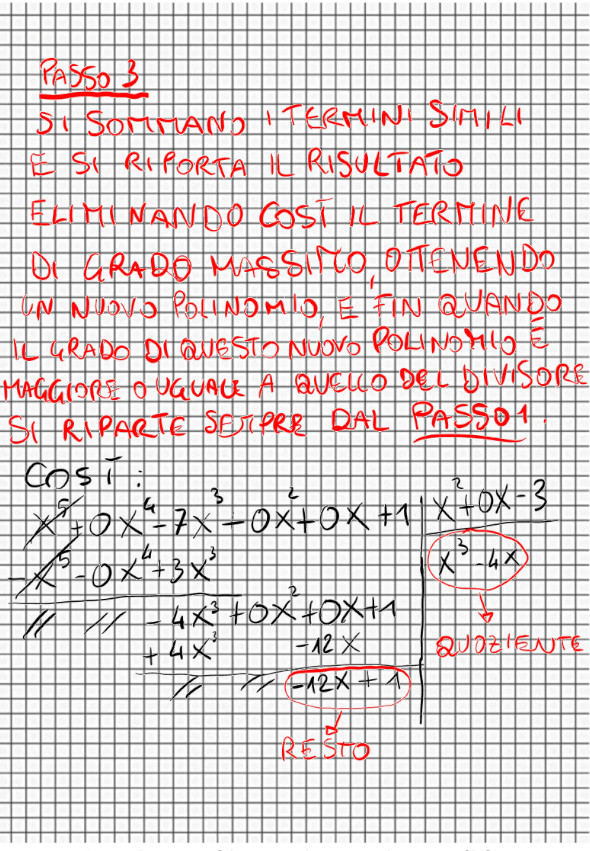 PASSO 3
SI SOMMANO I TERMINI SIMILI
E SI RIPORTA IL RISULTATO
ELIMINANDO COSÌ IL TERMINE
DI GRADO MASSIMO, OTTENENDO
UN NUOVO POLINOMIO, E FIN QUANDO
IL GRADO DI QUESTO NUOVO POLINOMIO È
MAGGIORE O UGUALE A QUELLO DEL DIVISORE
SI RIPARTE SEMPRE DAL PASSO 1.
COSÌ:
x⁵+0x⁴-7x³-0x²+0x+1 | x²+0x-3
-x⁵-0x⁴+3x³ x³-4x
// // -4x³+0x²+0x+1
+4x³ -12x QUOZIENTE
// // -12x+1
RESTO